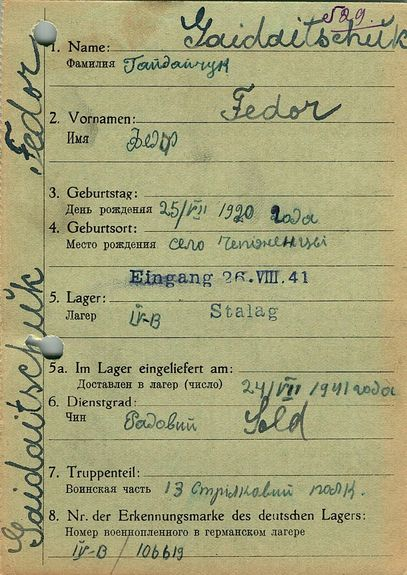 529.
1. Name: Gaidaitschuk
Фамилия Гайдайчук
2. Vornamen: Fedor
Имя Федір
3. Geburtstag:
День рождения 25/VII 1920 года
4. Geburtsort:
Место рождения село
Eingang 26.VIII.41
5. Lager: Stalag
Лагер IV-B
5a. Im Lager eingeliefert am:
Доставлен в лагер (число) 24/VII 1941 года
6. Dienstgrad: Sold
Чин Радовий
7. Truppenteil:
Воинская часть 13 Стрілковий полк.
8. Nr. der Erkennungsmarke des deutschen Lagers:
Номер военнопленного в германском лагере
IV-B / 106619
Gaidaitschuk Fedor